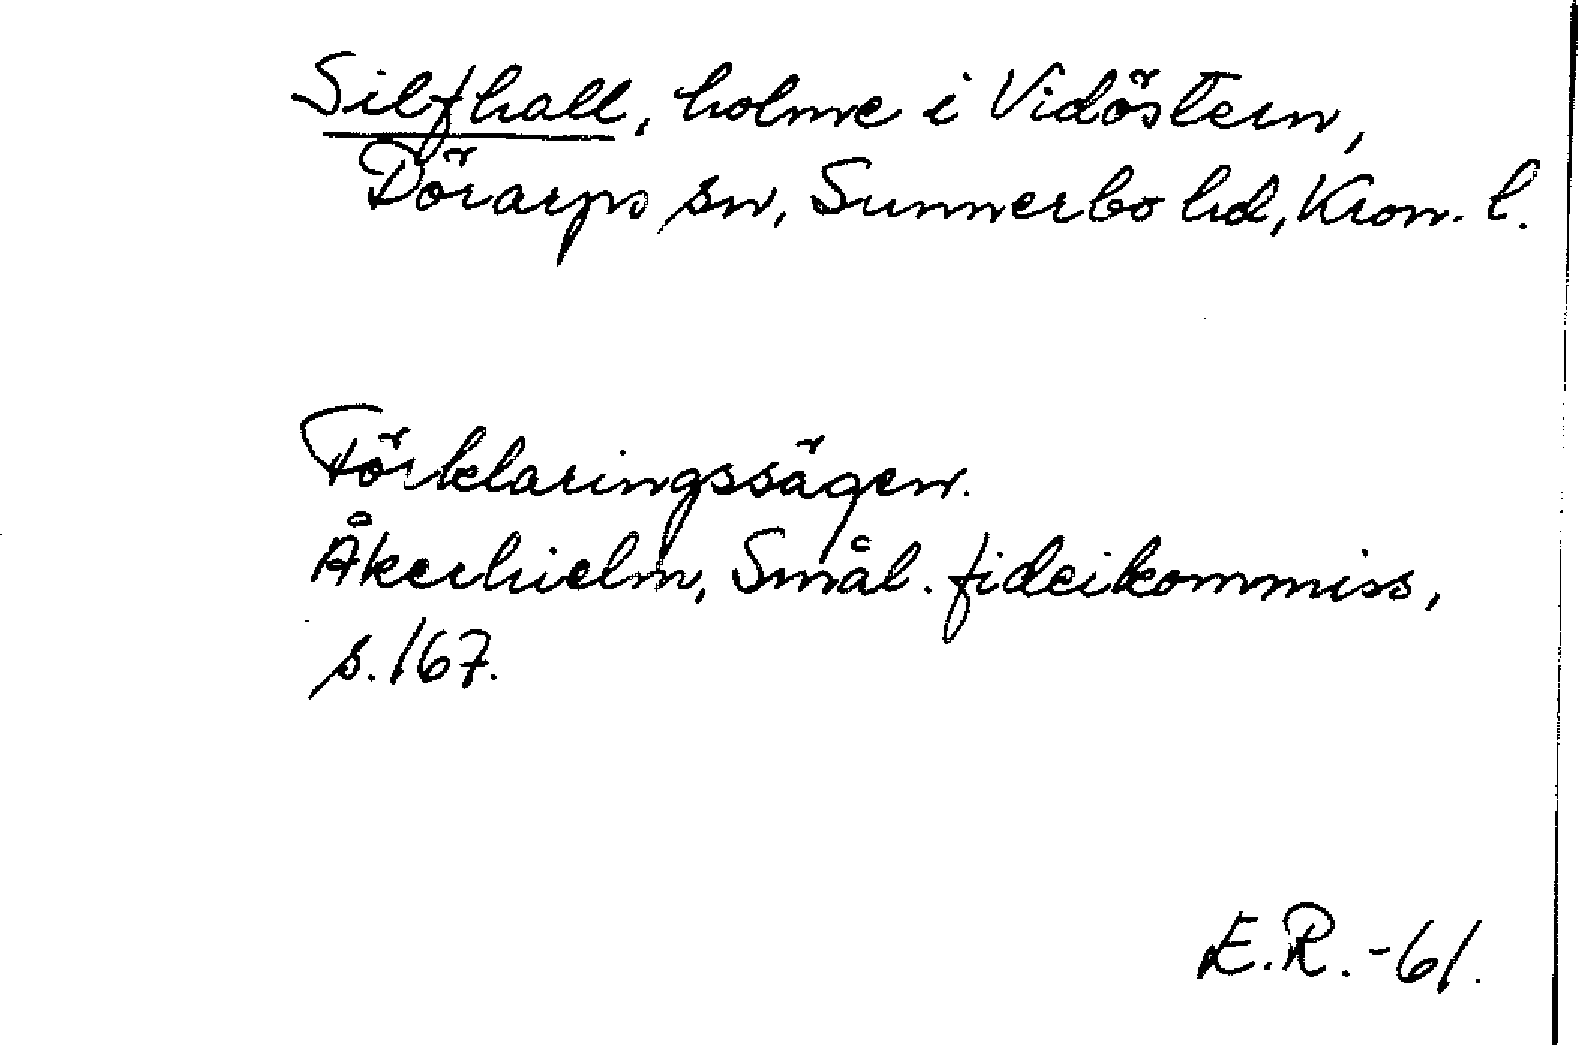 Silfhall, holme i Vidöstern,
Dörarps sn, Sunnerbo hd, Kron. l.
Förklaringssägen.
Åkerhielm, Smål. fideikommiss,
s. 167.
E.R. -61.